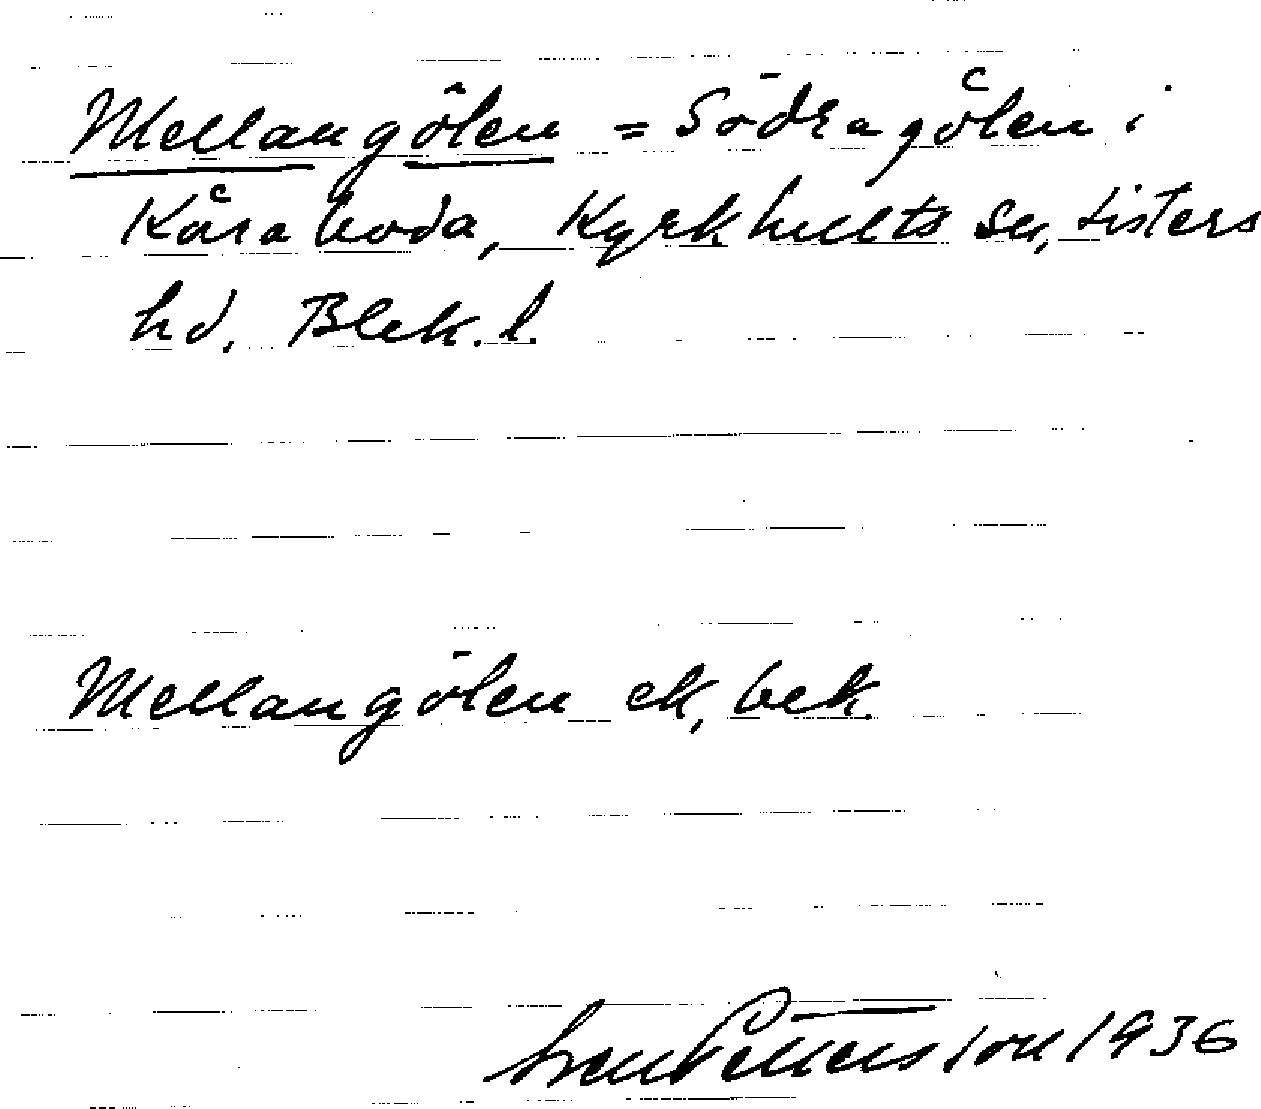 Mellangölen = Södragölen i
Kåraboda, Kyrkhults sn, Listers
hd. Blek. l.
Mellangölen ek, bek.
Sven Pettersson 1936